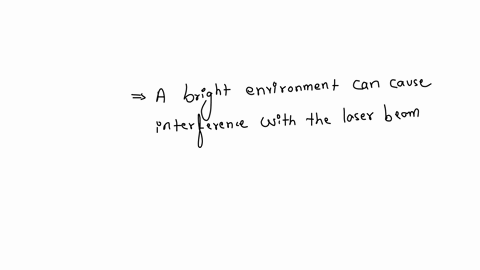 ⇒ A bright environment can cause
interference with the laser beam